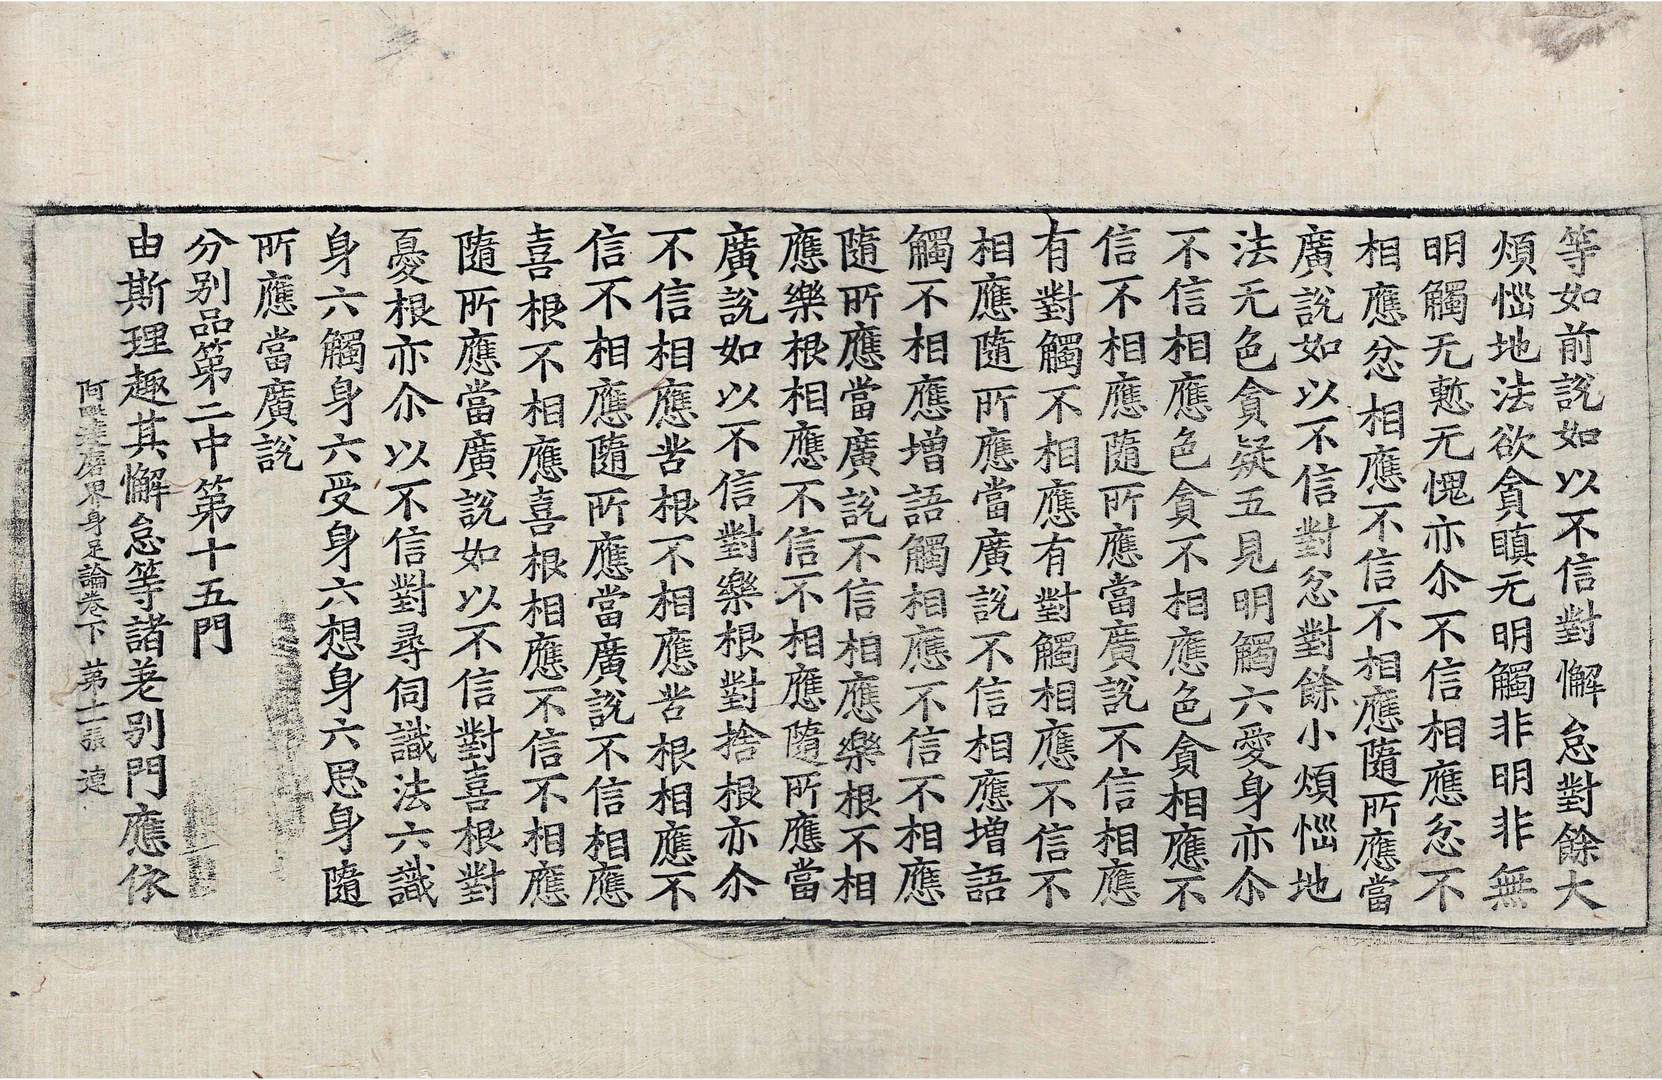 等如前說如以不信對懈怠對餘大
煩惱地法欲貪瞋无明觸非明非無
明觸无慙无愧亦尒不信相應忿不
相應忿相應不信不相應隨所應當
廣說如以不信對忿對餘小煩惱地
法无色貪疑五見明觸六愛身亦尒
不信相應色貪不相應色貪相應不
信不相應隨所應當廣說不信相應
有對觸不相應有對觸相應不信不
相應隨所應當廣說不信相應增語
觸不相應增語觸相應不信不相應
隨所應當廣說不信相應樂根不相
應樂根相應不信不相應隨所應當
廣說如以不信對樂根對捨根亦尒
不信相應苦根不相應苦根相應不
信不相應隨所應當廣說不信相應
喜根不相應喜根相應不信不相應
隨所應當廣說如以不信對喜根對
憂根亦尒以不信對尋伺識法六識
身六觸身六受身六想身六思身隨
所應當廣說
分別品第二中第十五門
由斯理趣其懈怠等諸差別門應依
阿毗達磨界身足論卷下 苐十二張 連